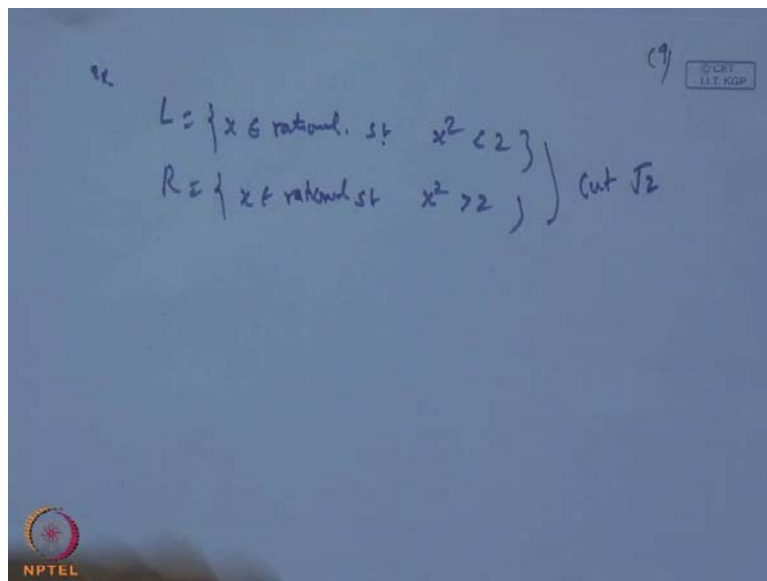 (9)
© CET
I.I.T. KGP
L = { x ∈ rational. st x² < 2 }
R = { x ∈ rational st x² > 2 } cut √2
NPTEL